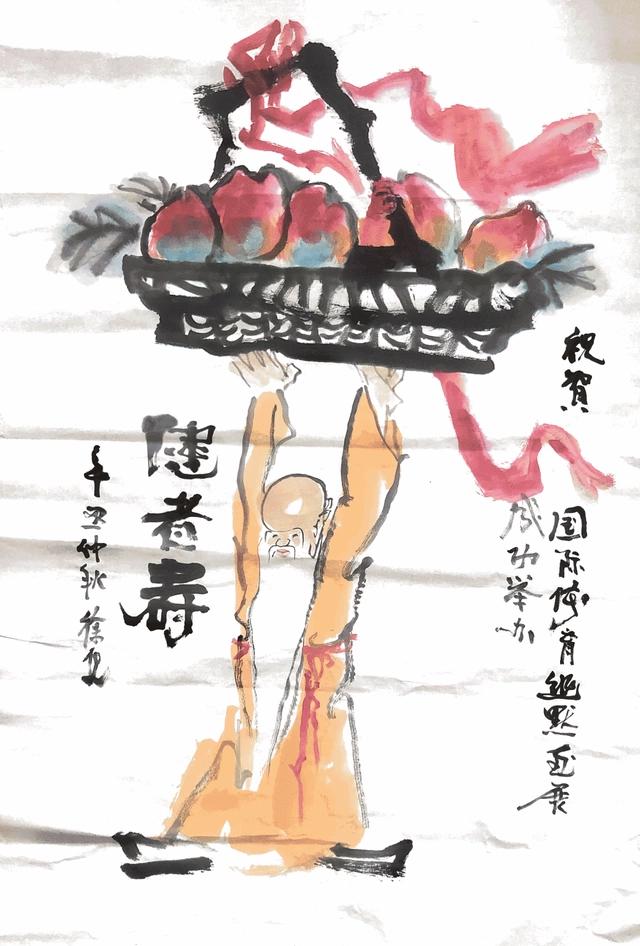 祝贺
国际体育幽默画展
成功举办
健者寿
辛丑仲秋徐